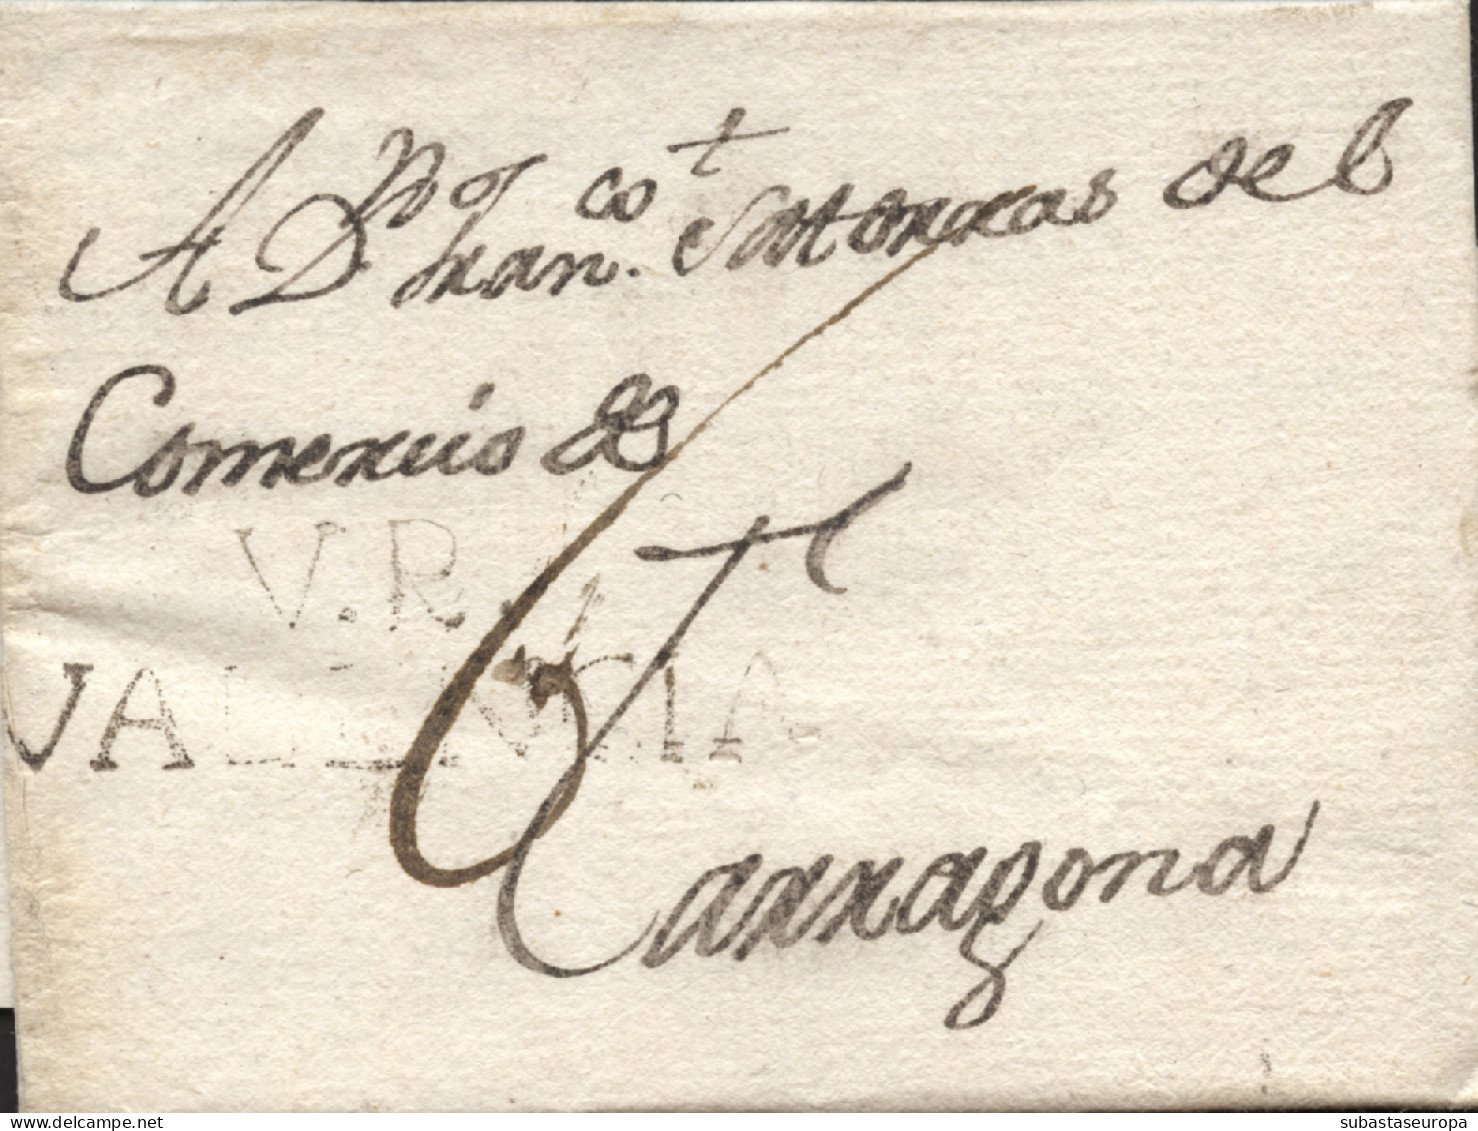 A D.n Juan. Satorras del
Comercio de
V.R.
VALENCIA
6
Tarragona
subastaseuropa